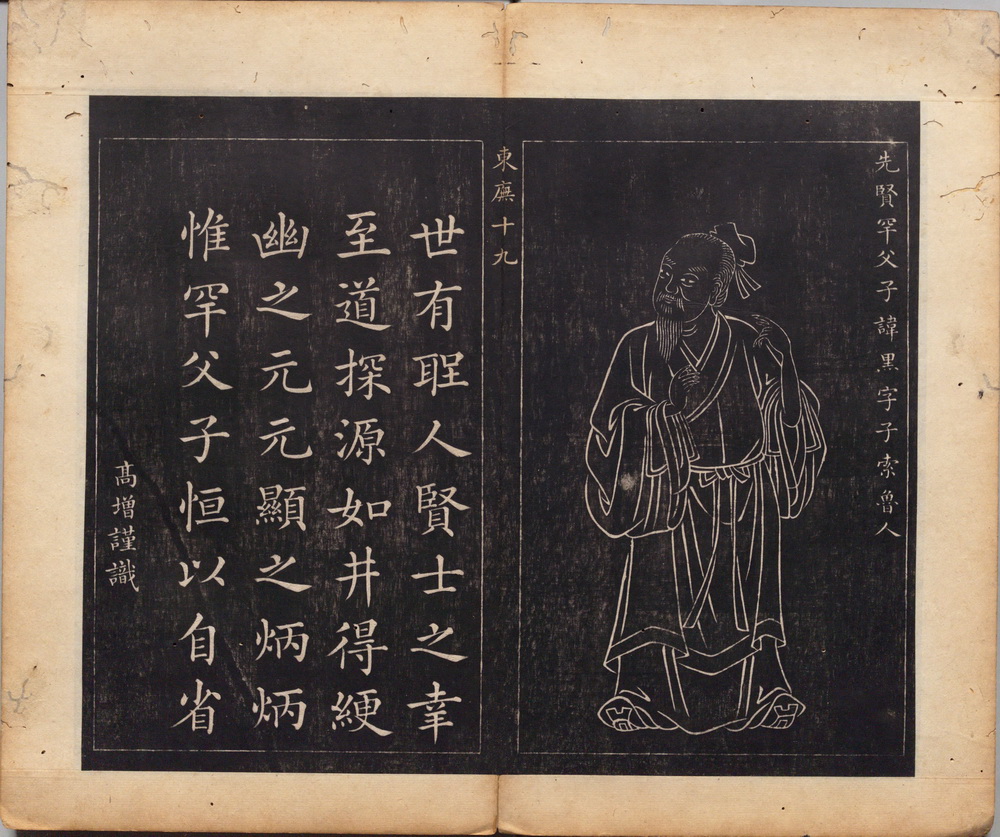 先賢罕父子諱黑字子索魯人
東廡十九
世有聖人賢士之幸
至道探源如井得綆
幽之元元顯之炳炳
惟罕父子恒以自省
高增謹識